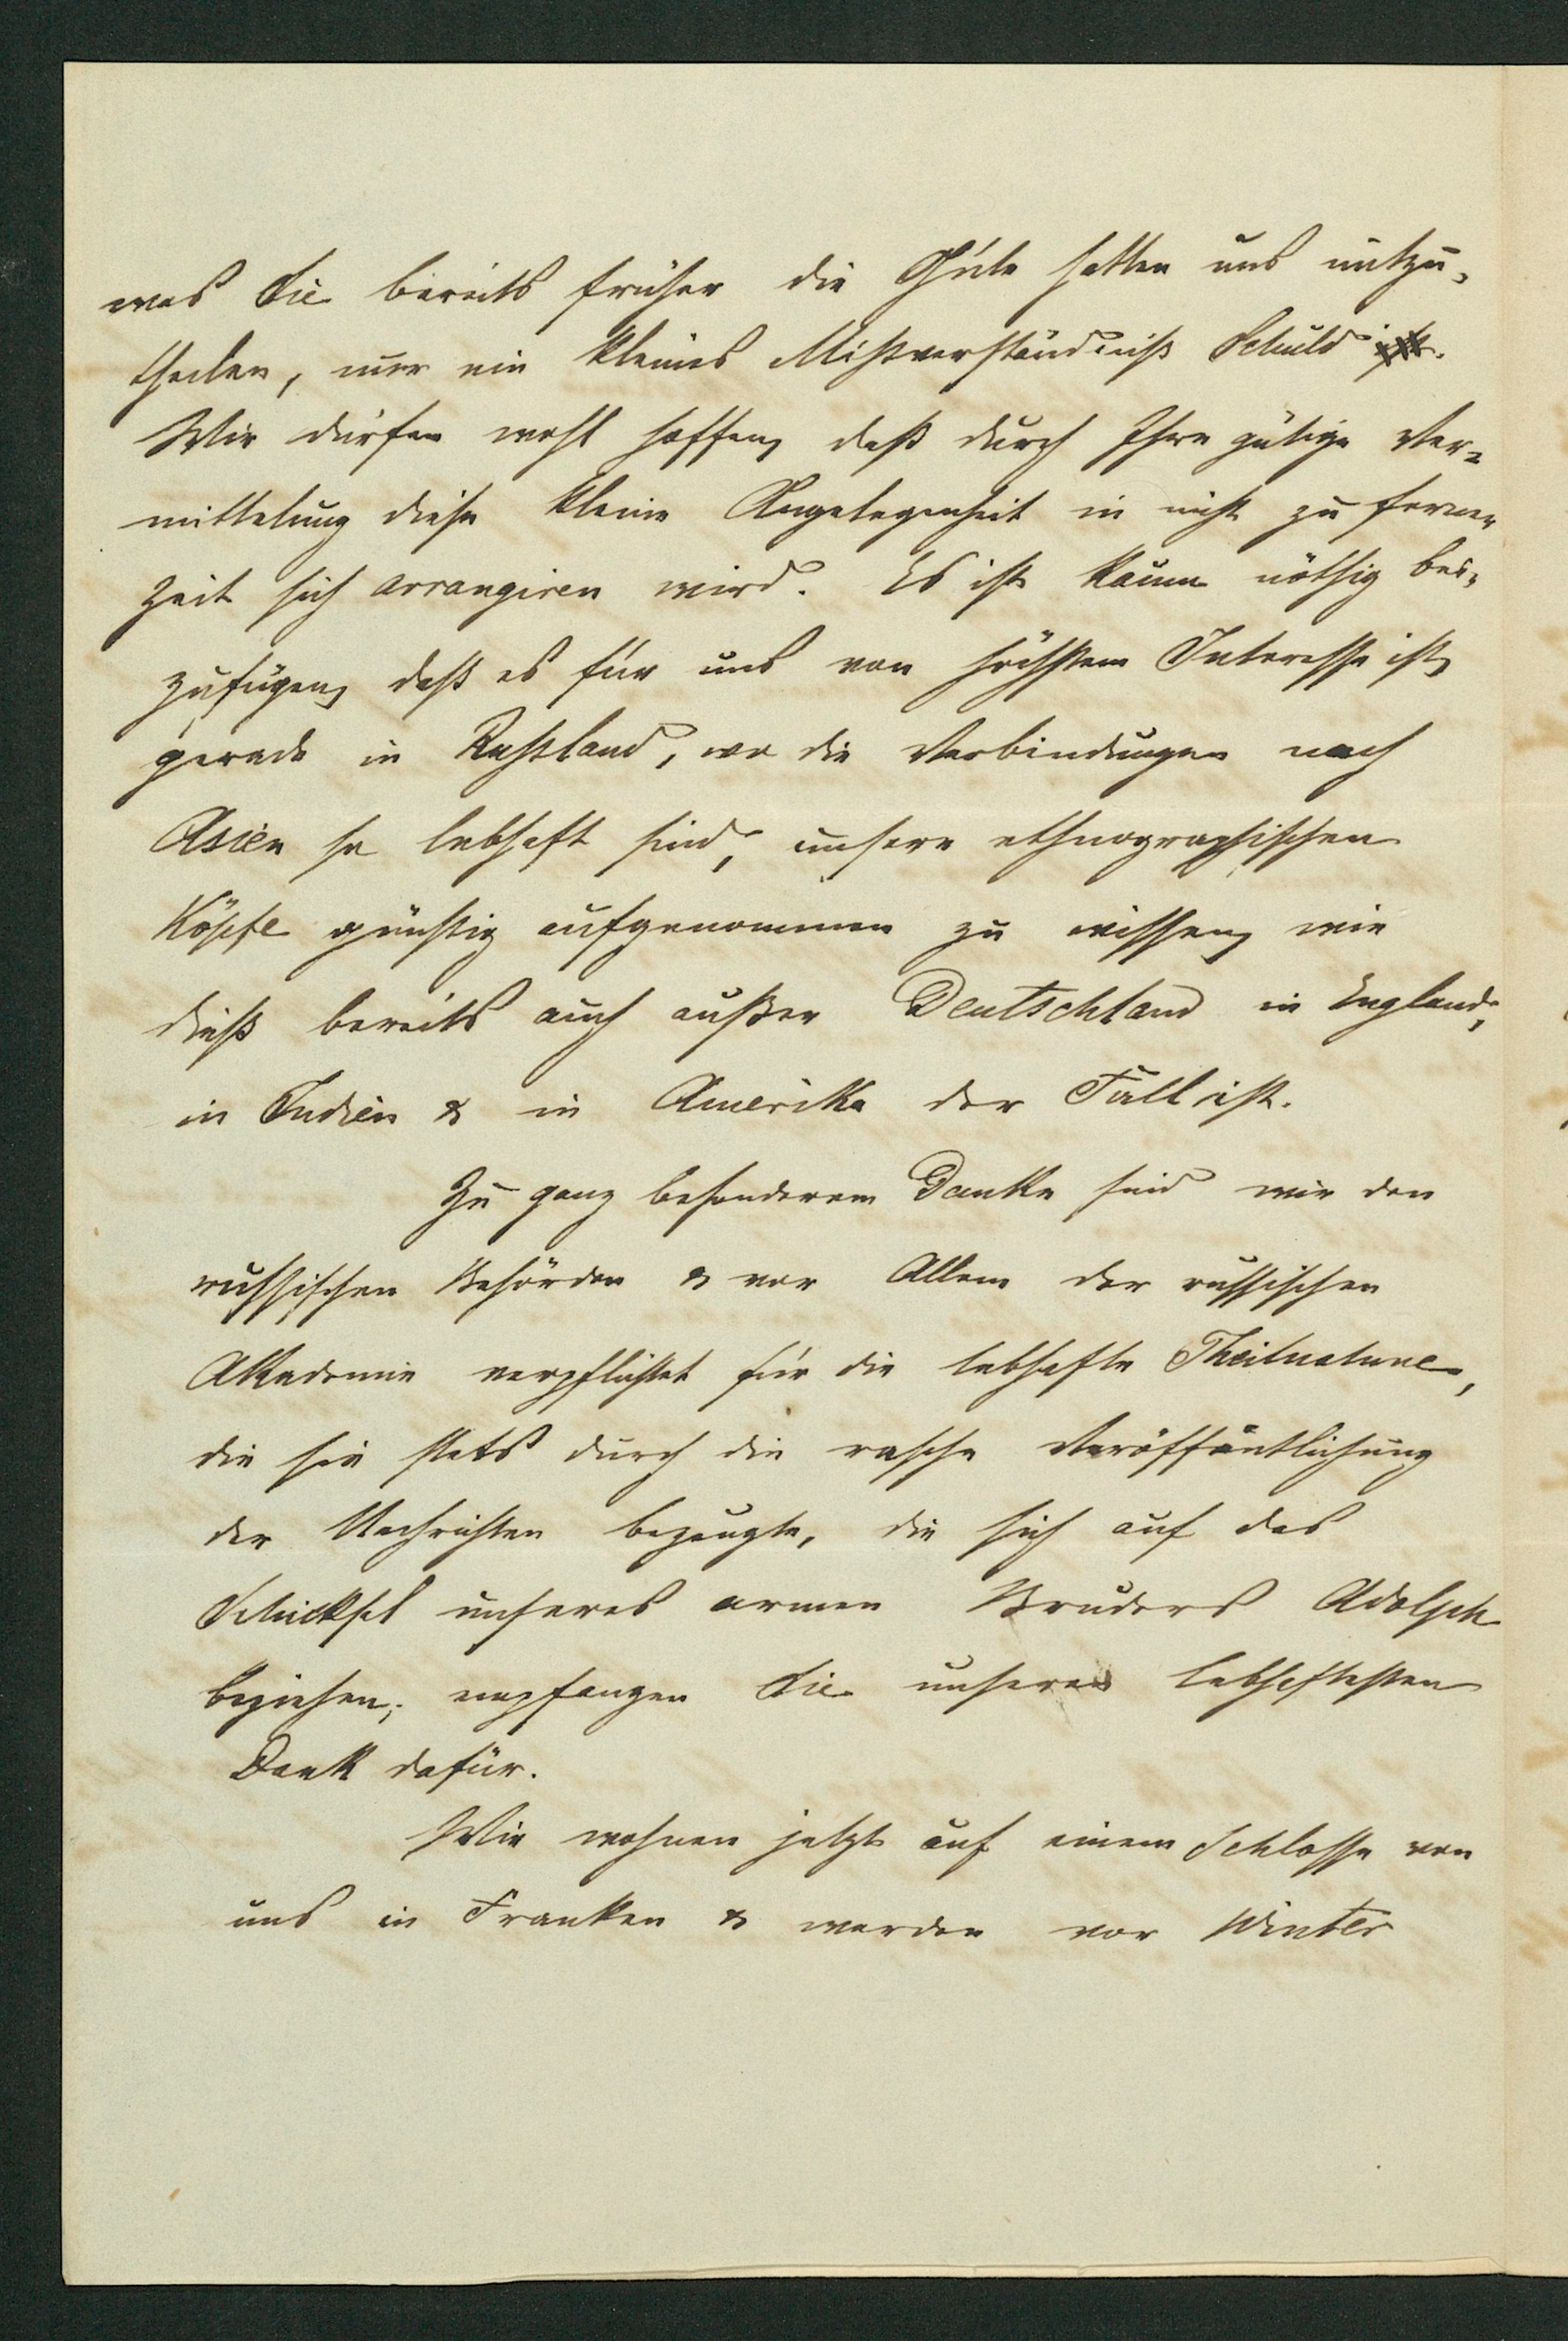 was Sie bereits früher die Güte hatten uns mitzu-
theilen, nur ein kleines Mißverständniß Schuld ist.
Wir dürfen wohl hoffen, daß durch Ihre gütige Ver-
mittelung diese kleine Angelegenheit in nicht zu ferner
Zeit sich arrangiren wird. Es ist kaum nöthig bei-
zufügen, daß es für uns von höchstem Interesse ist,
gerade in Rußland, wo die Verbindungen nach
Asien so lebhaft sind, unsere ethnographischen
Köpfe günstig aufgenommen zu wissen, wie
dieß bereits auch außer Deutschland in England,
in Indien & in Amerika der Fall ist.
Zu ganz besonderem Danke sind wir den
russischen Behörden & vor Allem der russischen
Akademie verpflichtet für die lebhafte Theilnahme,
die sie stets durch die rasche Veröffentlichung
der Nachrichten bezeugte, die sich auf das
Schicksal unseres armen Bruders Adolph
beziehen; empfangen Sie unseren lebhaftesten
Dank dafür.
Wir wohnen jetzt auf einem Schlosse von
uns in Franken & werden vor Winter